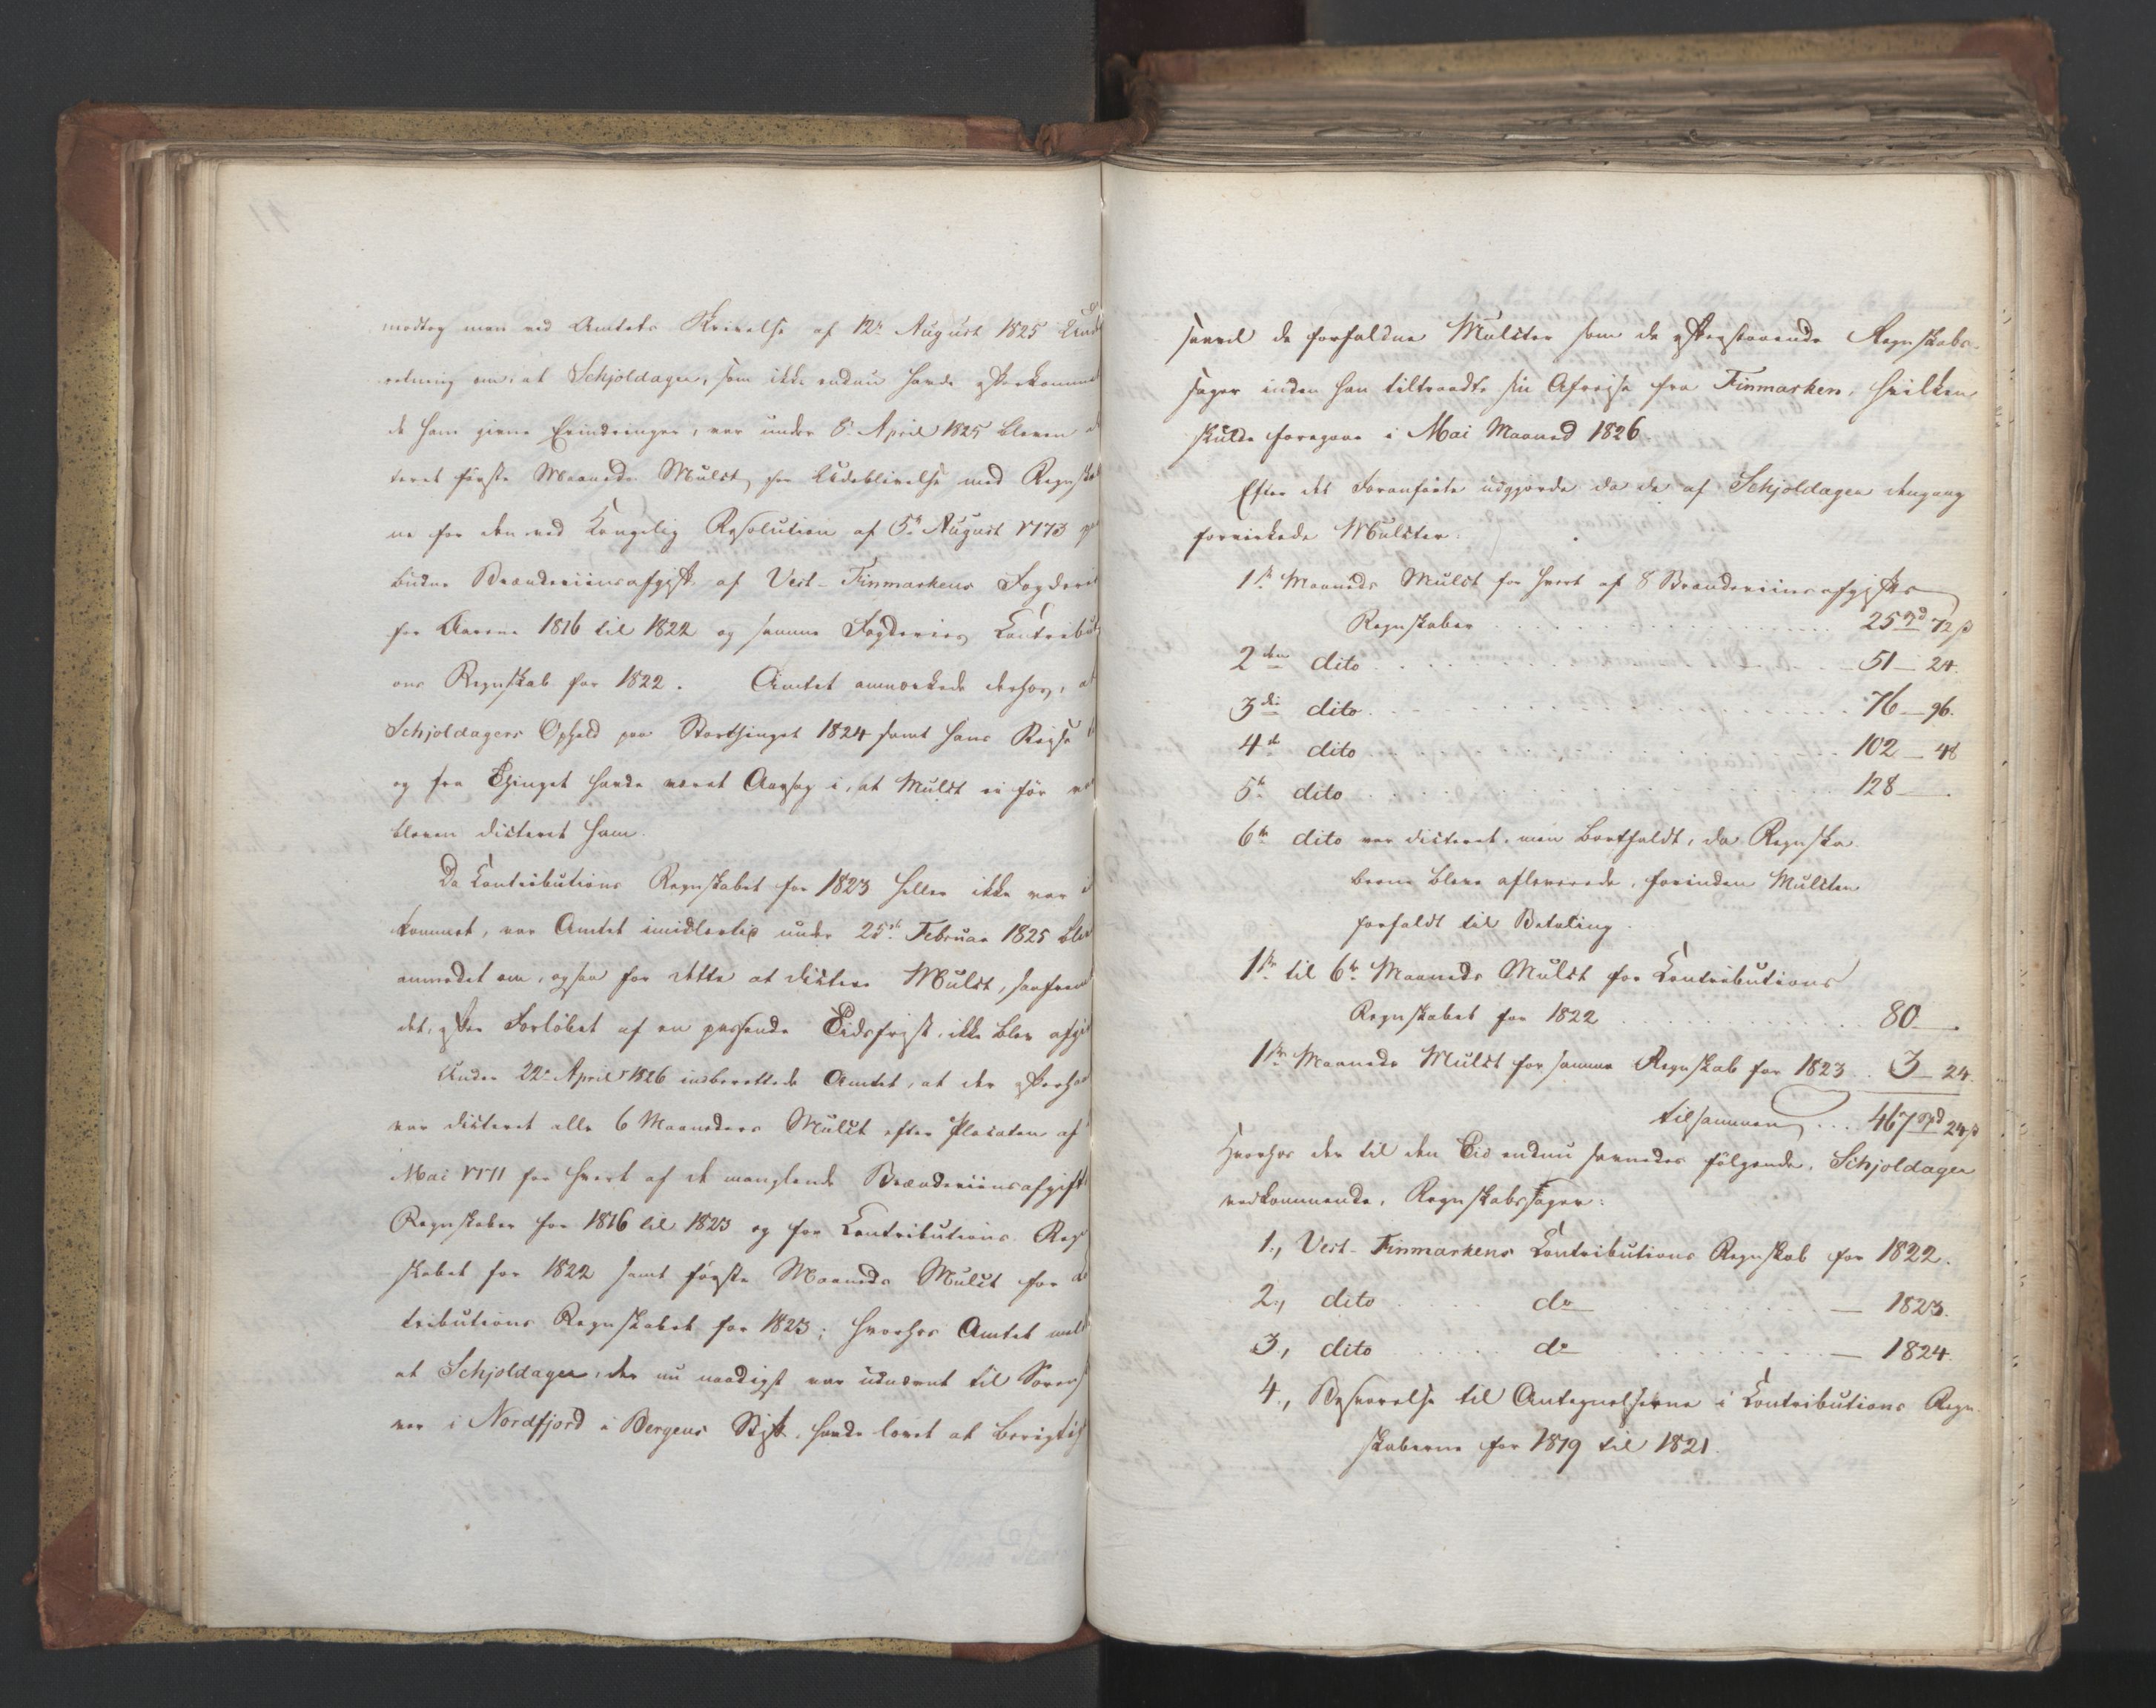 modtog man ved Amtets Skrivelse af 12te August 1825 Und
retning om, at Schjoldager, som ikke endnu havde efterkommet
de ham givne Erindringer, var under 8de April 1825 bleven
teret første Maaneds Mulct for Udeblivelse med Regnska
ne for den ved Kongelig Resolution af 5te August 1773
budne Brændeviinsafgift af Vest-Finmarkens Fogderi
for Aarene 1816 til 1822 og samme Fogderies Contributi
ons Regnskab for 1822. Amtet anmærkede derhos, at
Schjoldagers Ophold paa Storthinget 1824 samt hans Reise
og fra Thinget havde været Aarsag i, at Mulct ei før
bleven dicteret ham.
Da Contributions Regnskabet for 1823 heller ikke var
kommet, var Amtet imidlertid under 25de Februar 1825 blev
anmodet om, ogsaa for dette at dictere Mulct, saafremt
det, efter Forløbet af en passende Tidsfrist, ikke blev afgi
Under 22de April 1826 indberettede Amtet, at der efterhaan
var dicteret alle 6 Maaneders Mulct efter Placaten af
Mai 1771 for hvert af de manglende Brændeviinsafgifts
Regnskaber for 1816 til 1823 og for Contributions Regn
skabet for 1822 samt første Maaneds Mulct for
tributions Regnskabet for 1823; hvorhos Amtet meldte
at Schjoldager, der nu naadigst var udnævnt til Sorenskri
ver i Nordfjord i Bergens Stift, havde lovet at berigtig
saavel de forfaldne Mulcter som de efterstaaende Regnskabs-
sager inden han tiltraadte sin Afreise fra Finmarken, hvilken
skulde foregaae i Mai Maaned 1826.
Efter det Foranførte udgjorde da de af Schjoldager dengang
forvirkede Mulcter:
1ste Maaneds Mulct for hvert af 8 Brændeviinsafgifts
Regnskaber . . . 25 Spd 72 ß
2den dito . . . 51 — 24.
3die dito . . . 76 — 96.
4de dito . . . 102 — 48
5te dito . . . 128 — .
6te dito var dicteret, men bortfaldt, da Regnska-
berne bleve afleverede, forinden Mulcten
forfaldt til Betaling.
1ste til 6te Maaneds Mulct for Contributions
Regnskabet for 1822 . . . 80 — .
1ste Maaneds Mulct for samme Regnskab for 1823 . 3 — 24.
tilsammen . . . 467 Spd 24 ß
Hvorhos der til den Tid endnu savnedes følgende, Schjoldager
vedkommende, Regnskabssager:
1., Vest-Finmarkens Contributions Regnskab for 1822.
2., dito . . . do . . . — 1823.
3., dito . . . do . . . — 1824.
4., Besvarelse til Antegnelserne i Contributions Regn-
skaberne for 1819 til 1821.